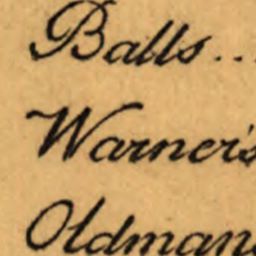 Balls..
Warner's
Oldman